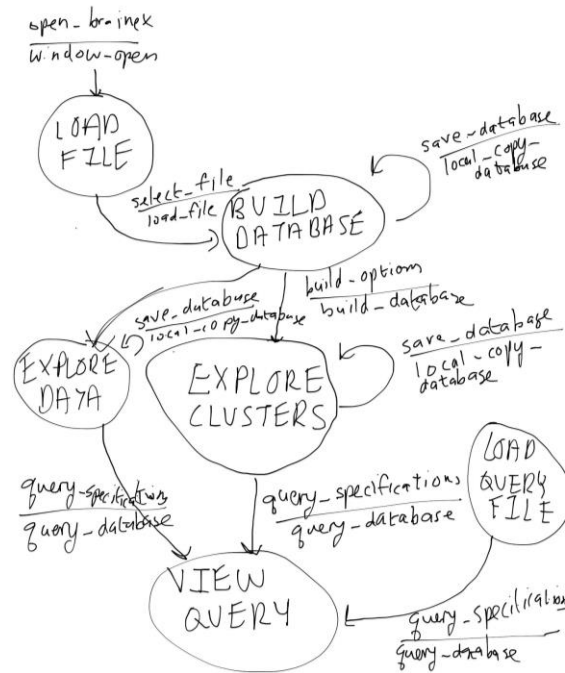 open_brainex
window_open
LOAD
FILE
select_file
load_file
BUILD
DATABASE
save_database
local_copy_
database
build_options
build_database
save_database
local_copy_database
EXPLORE
DATA
EXPLORE
CLUSTERS
save_database
local_copy_
database
LOAD
QUERY
FILE
query_specifications
query_database
query_specifications
query_database
VIEW
QUERY
query_specification
query_database